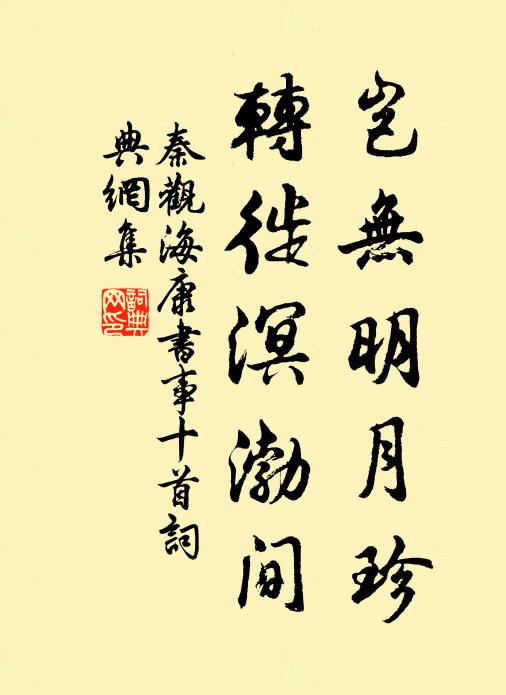 豈無明月珍
轉徙溟渤間
秦觀海康書事十首詞
典網集
詞典網印